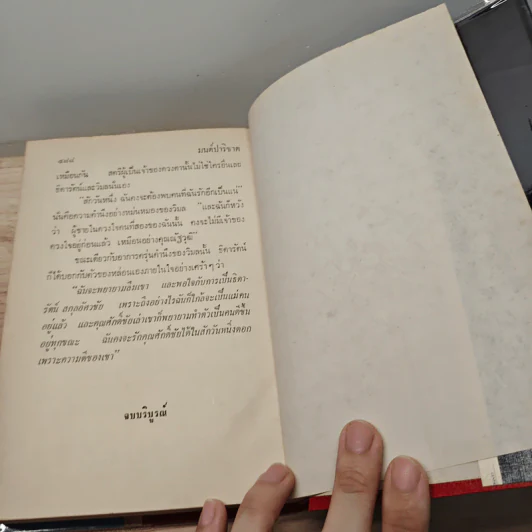 ๔๘๘ มนต์ปาริชาต
เหมือนกัน สตรีผู้เป็นเจ้าของดวงตานั้นไม่ใช่ใครอื่นเลย
ธิดารัตน์และวิมลนั่นเอง
"สักวันหนึ่ง ฉันคงจะต้องพบคนที่ฉันรักอีกเป็นแน่"
นั่นคือความคำนึงอย่างหม่นหมองของวิมล "และฉันก็หวัง
ว่า ผู้ชายในดวงใจคนที่สองของฉันนั้น คงจะไม่มีเจ้าของ
ดวงใจอยู่ก่อนแล้ว เหมือนอย่างคุณณัฐวุฒิ"
ขณะเดียวกับอาการครุ่นคำนึงของวิมลนั้น ธิดารัตน์
ก็ได้บอกกับตัวของหล่อนเองภายในใจอย่างเศร้าๆ ว่า
"ฉันจะพยายามลืมเขา และพอใจกับการเป็นธิดา-
รัตน์ สกุลอัศวชัย เพราะถึงอย่างไรฉันก็ใกล้จะเป็นแม่คน
อยู่แล้ว และคุณศักดิ์ชัยเล่าเขาก็พยายามทำตัวเป็นคนดีขึ้น
อยู่ทุกขณะ ฉันคงจะรักคุณศักดิ์ชัยได้ในสักวันหนึ่งดอก
เพราะความดีของเขา"
จบบริบูรณ์